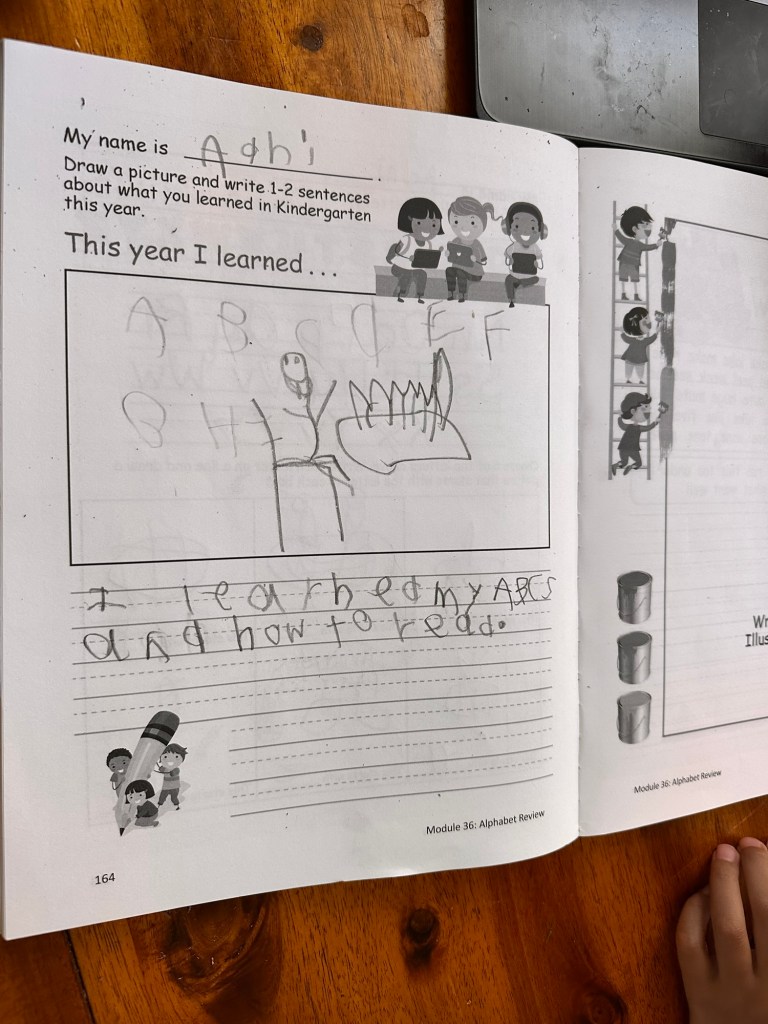 My name is Adhi.
Draw a picture and write 1-2 sentences
about what you learned in Kindergarten
this year.
This year I learned . . .
A B C D E F
G H I
I learned my ABCs
and how to read.
Module 36: Alphabet Review
164
Wr
Illus
Module 36: Alphabet Review